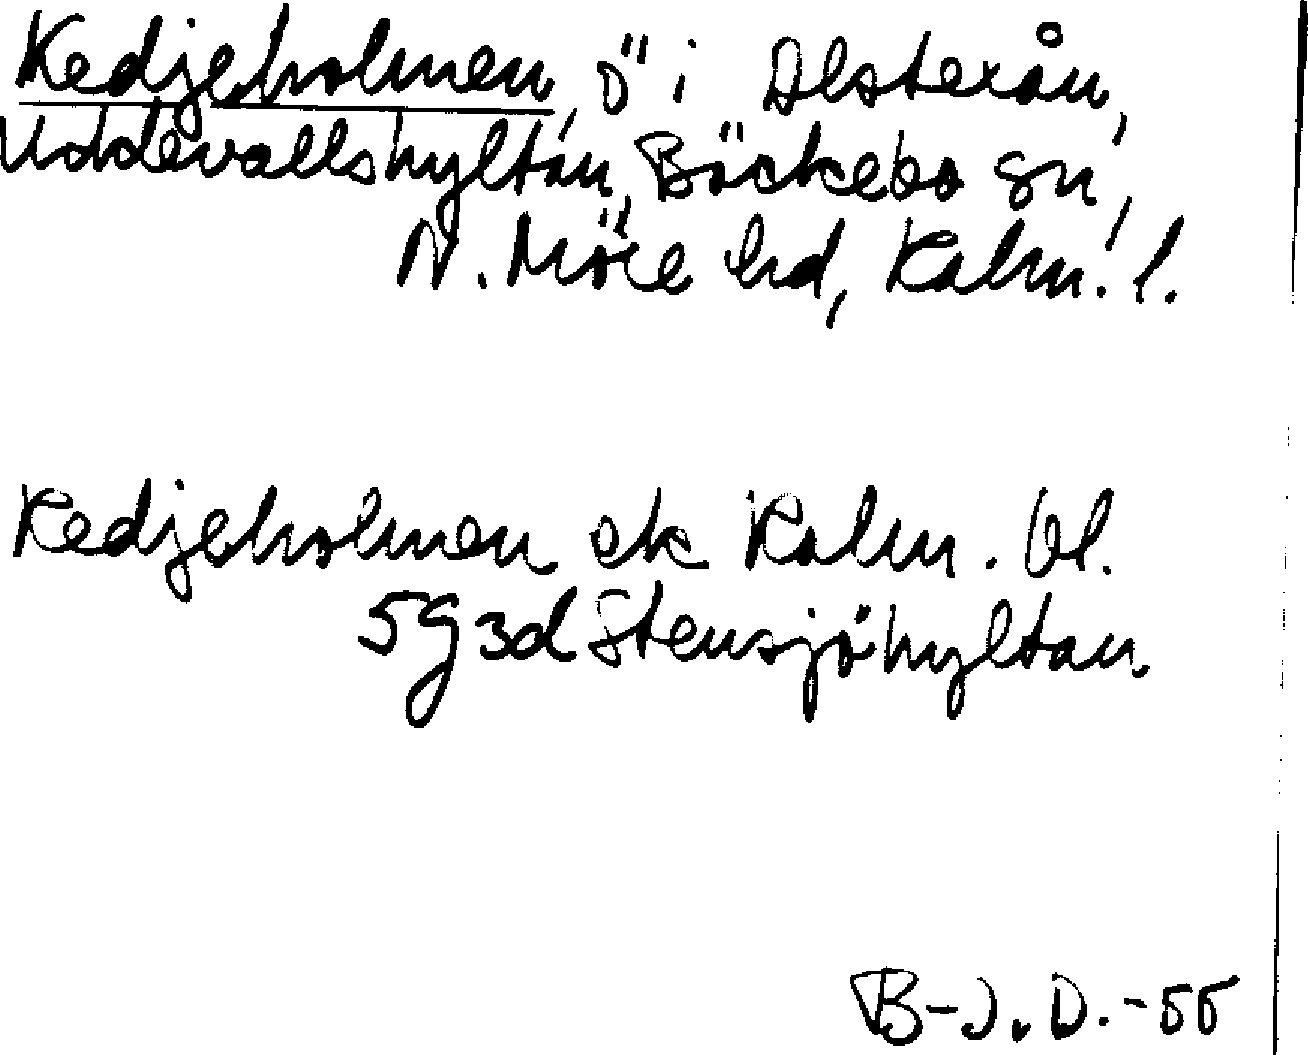 Kedjeholmen, ö i Alsterån,
Uddevallshyltan, Bäckebo sn,
N. Möre hd, Kalm. l.
Kedjeholmen ek Kalm. bl.
5g3d Stensjöhyltan
B-J.D.-55